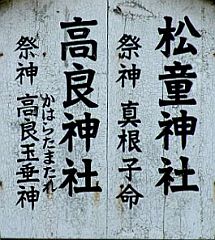 松童神社
祭神 真根子命
高良神社
祭神 高良玉垂神
かはらたまたれ